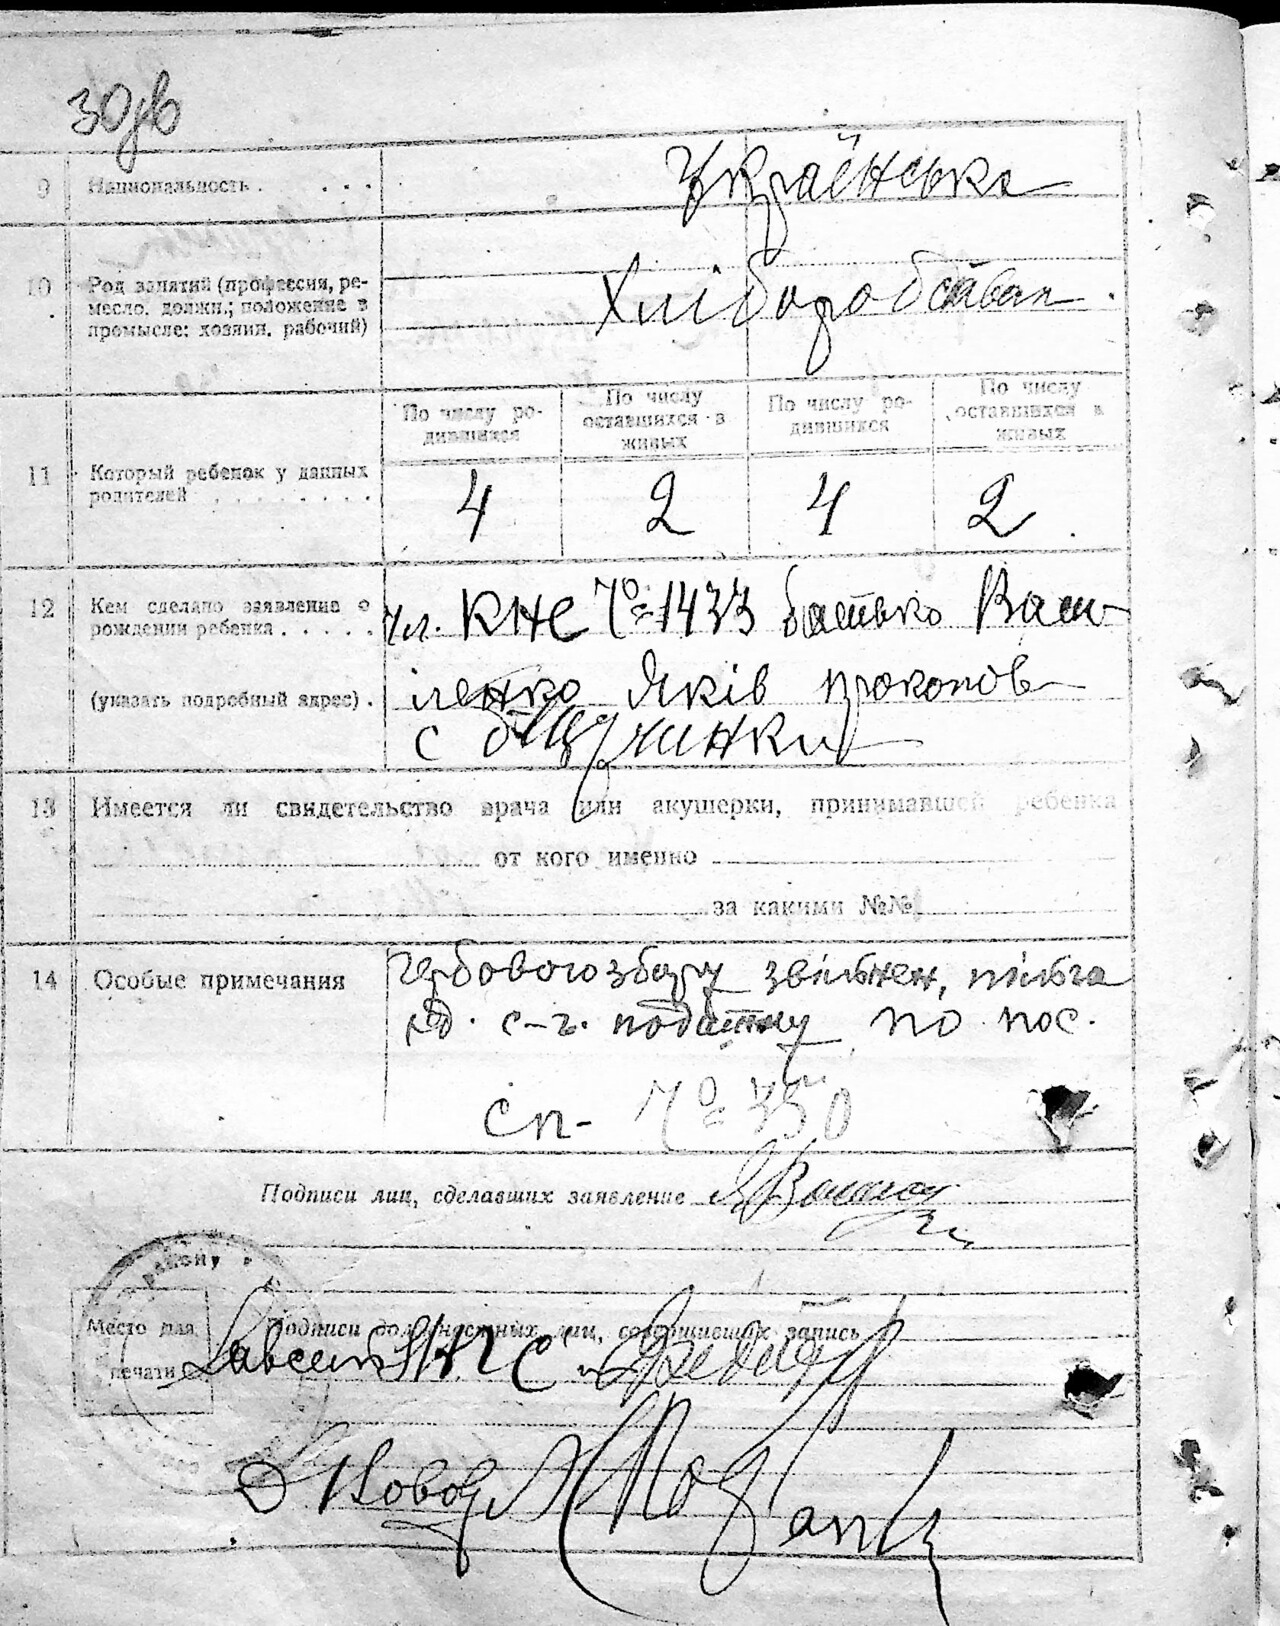 30
9 Национальность . . . . Українська
10 Род занятий (профессия, ре-
месло, должн.; положение в
промысле: хозяин, рабочий)
Хлібороб
По числу ро-
дившихся
По числу
оставшихся в
живых
По числу ро-
дившихся
По числу
оставшихся в
живых
11 Который ребенок у данных
родителей . . . . . . . .
4 2 4 2
12 Кем сделано заявление о
рождении ребенка . . . . .
чл. КНС № 1433 батько Васи-
(указать подробный адрес) .
ленко Яків Прокопов
с
13 Имеется ли свидетельство врача или акушерки, принимавшей ребенка
от кого именно
за какими №№
14 Особые примечания
Гербового збору звільнен, пільга
од. с-г. податку по пос.
сп- № 350
Подписи лиц, сделавших заявление
Место для
печати
Подписи должностных лиц, совершивших запись
району